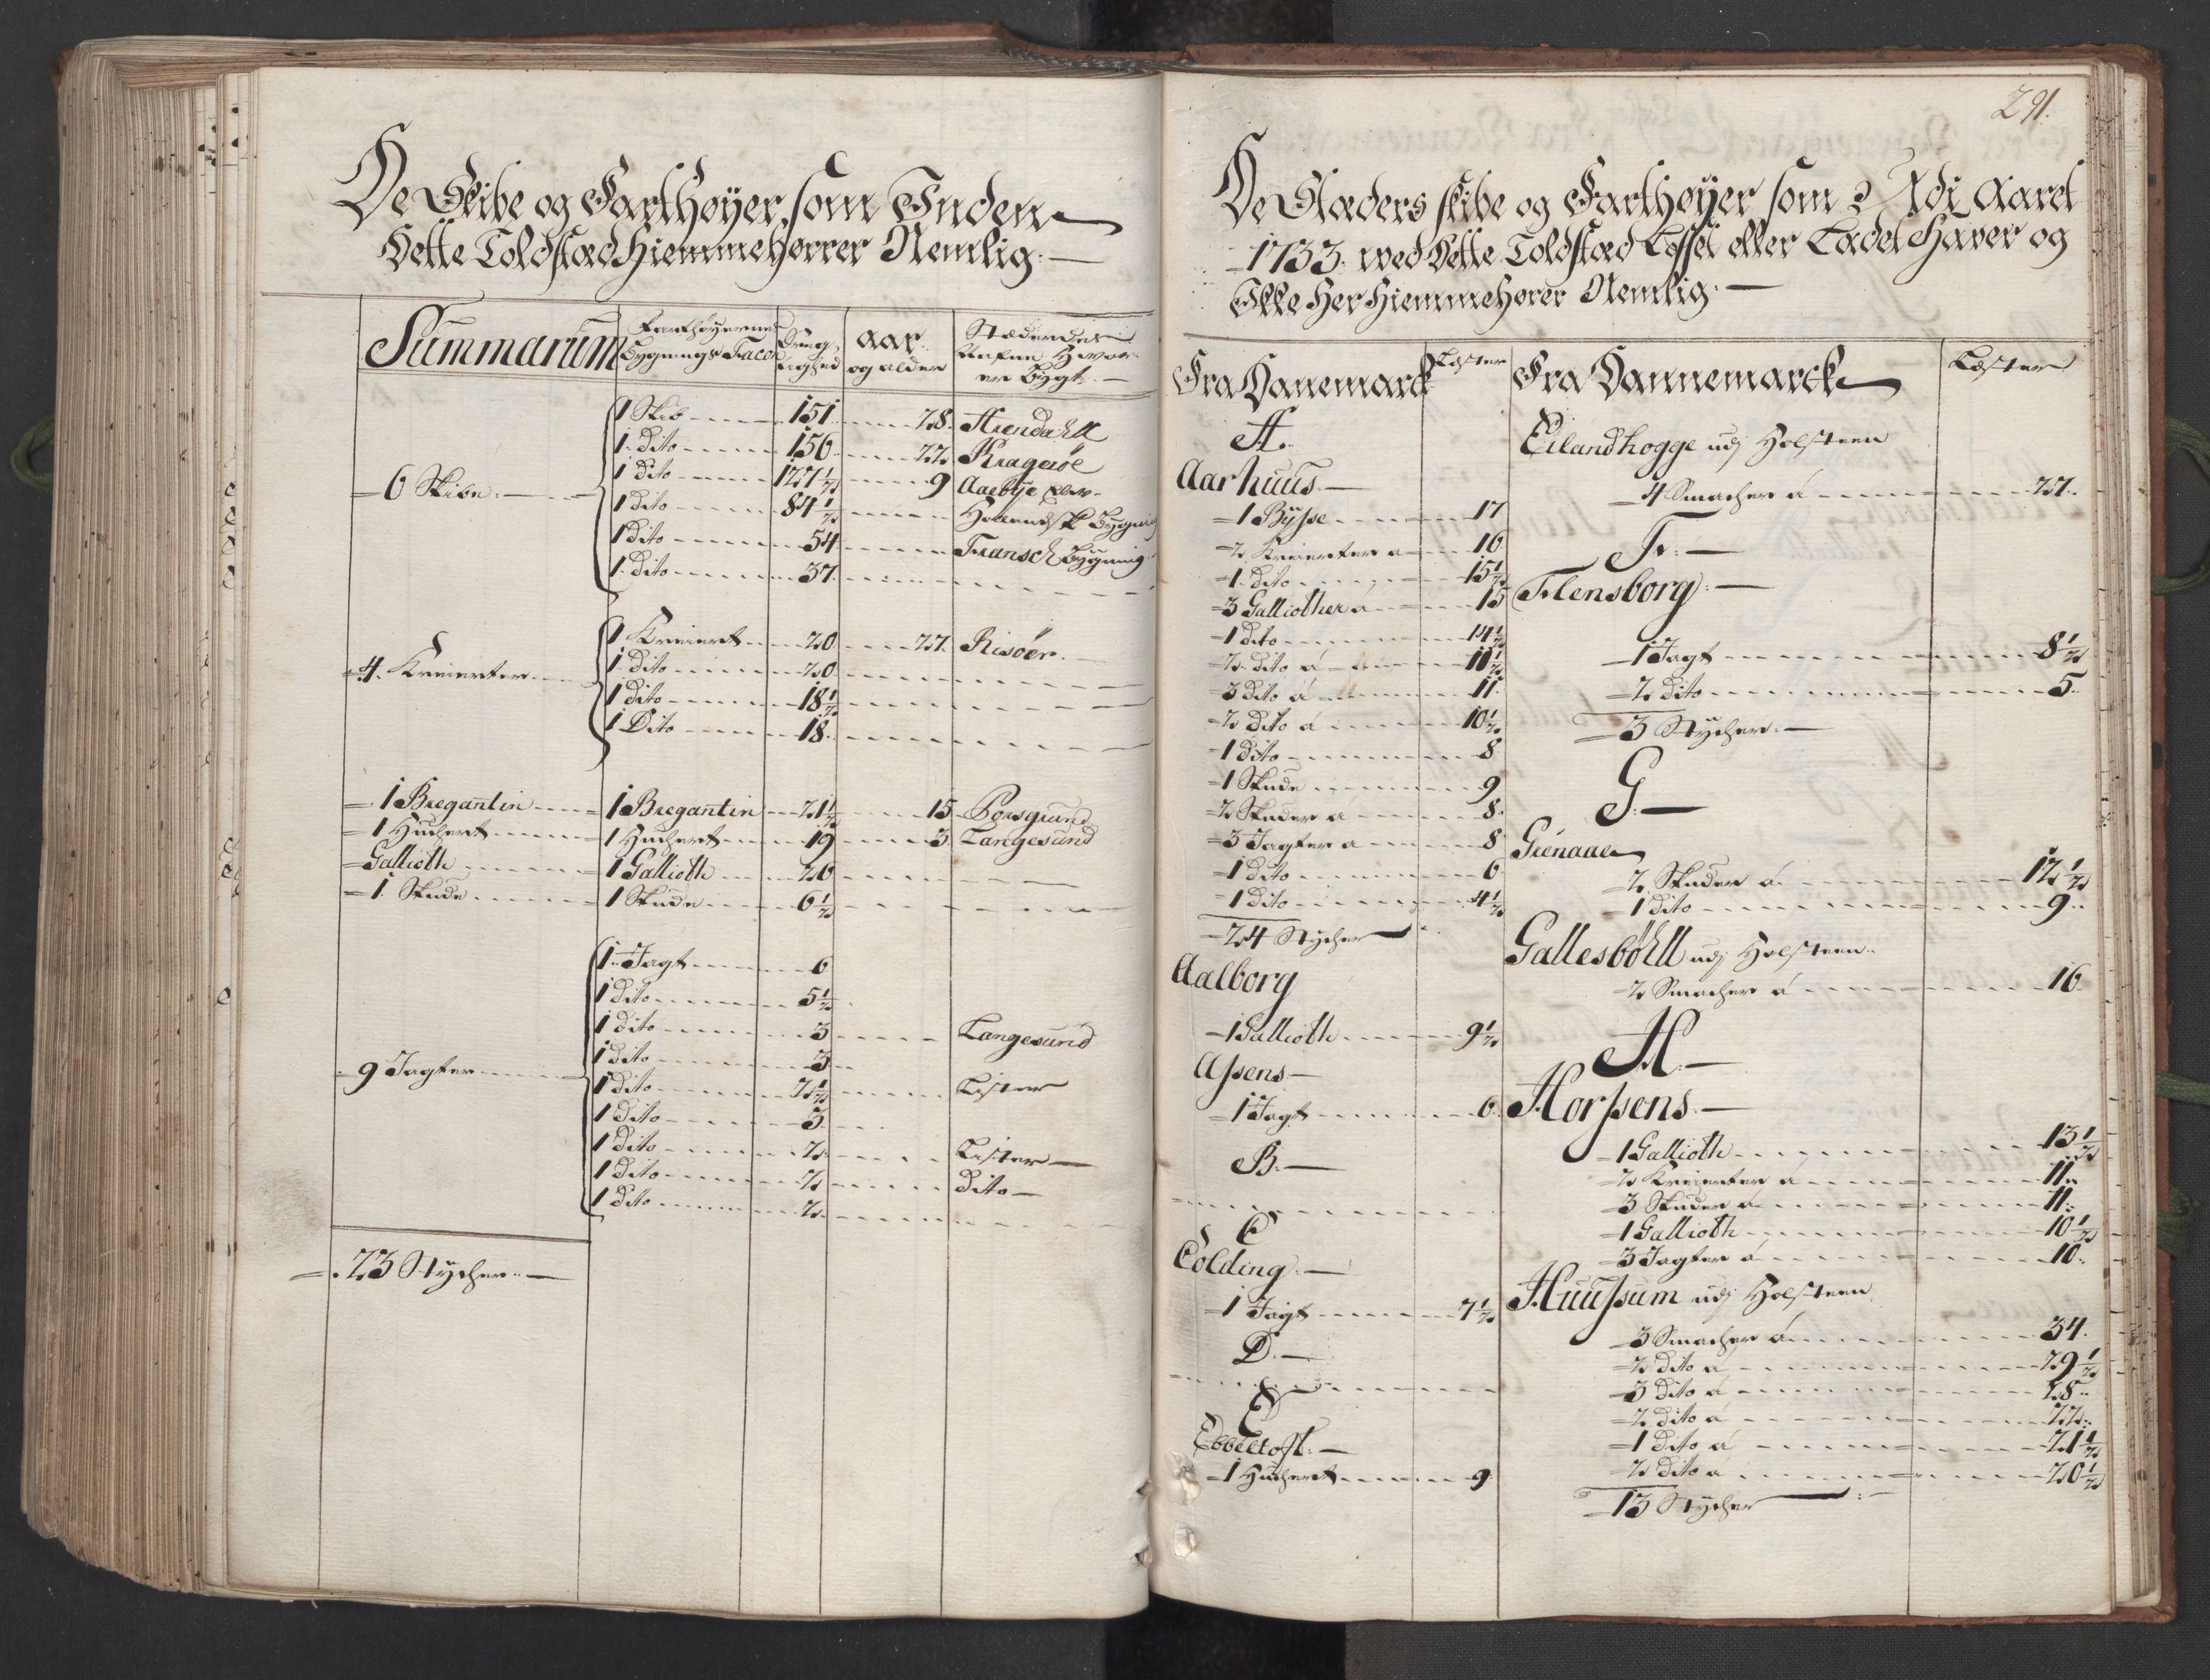 De Skibe og Farthøyer som Inden
Dette Toldstæd Hiemmehørrer Nemlig:
Summarum
Farthøyernes
Bygnings Facon
Dreg-
tighed
aar
og alder
Stædernes
Nafne Hvor
er bygt
6 Skibe
1 Skib 151 28 Arendahll
1 Dito 156 22 Kragerøe
1 Dito 127½ 9 Aaebye
1 Dito 84½ Hollandsk Bygning
1 Dito 54 Fransch Bygning
1 Dito 37
4 Kreierter
1 Kreiert 20 27 Risöer
1 Dito 20
1 Dito 18½
1 Dito 18
1 Bregantin 1 Bregantin 21½ 15 Porsgrund
1 Huchert 1 Huchert 19 3 Langesund
Gallioth 1 Gallioth 26
1 Skude 1 Skude 6½
9 Jagter
1 Jagt 6
1 Dito 5½
1 Dito 3 Langesund
1 Dito 3
1 Dito 2½ Lister
1 Dito 3
1 Dito 2 Lister
1 Dito 2 Dito
1 Dito 2
23 Stycher
291.
De Stæders skibe og Farthøyer som Adi Aaret
1733. ved Dette Toldstæd Losset eller Ladet Haver og
Ikke Her Hiemmehører Nemlig:
Fra Danemarck Læster
A.
Aarhuus
1 Bysse 17
2 Kreierter a 16
1 Dito 15½
3 Galliother á 15
1 Dito 14½
2 Dito á 11½
3 Dito á 11
2 Dito á 10½
1 Dito 8
1 Skude 9
2 Skuder á 8
3 Jagter a 8
1 Dito 6
1 Dito 4½
24 Stycher
Aalborg
1 Gallioth 9½
Assens
1 Jagt 6
B.
C
Colding
1 Jagt 7½
D.
E
Ebbeltoft
1 Huchert 9
Fra Dannemarck Læster
Eilandhogge udj Holsteen
4 Smacher á 27
F.
Flensborg
1 Jagt 8½
2 Dito 5
3 Stycher
G
Grenaae
2 Skuder á 12½
1 Dito 9
Gallesbøhll udj Holsteen
2 Smacher á 16
H.
Horssens
1 Gallioth 13½
2 Kreierter á 11
3 Skuder á 11
1 Gallioth 10½
3 Jagter á 10
Huussum udj Holsteen
3 Smacher á 34
2 Dito á 29½
3 Dito á 28
2 Dito á 22
1 Dito á 21½
2 Dito á 20½
13 Stycher